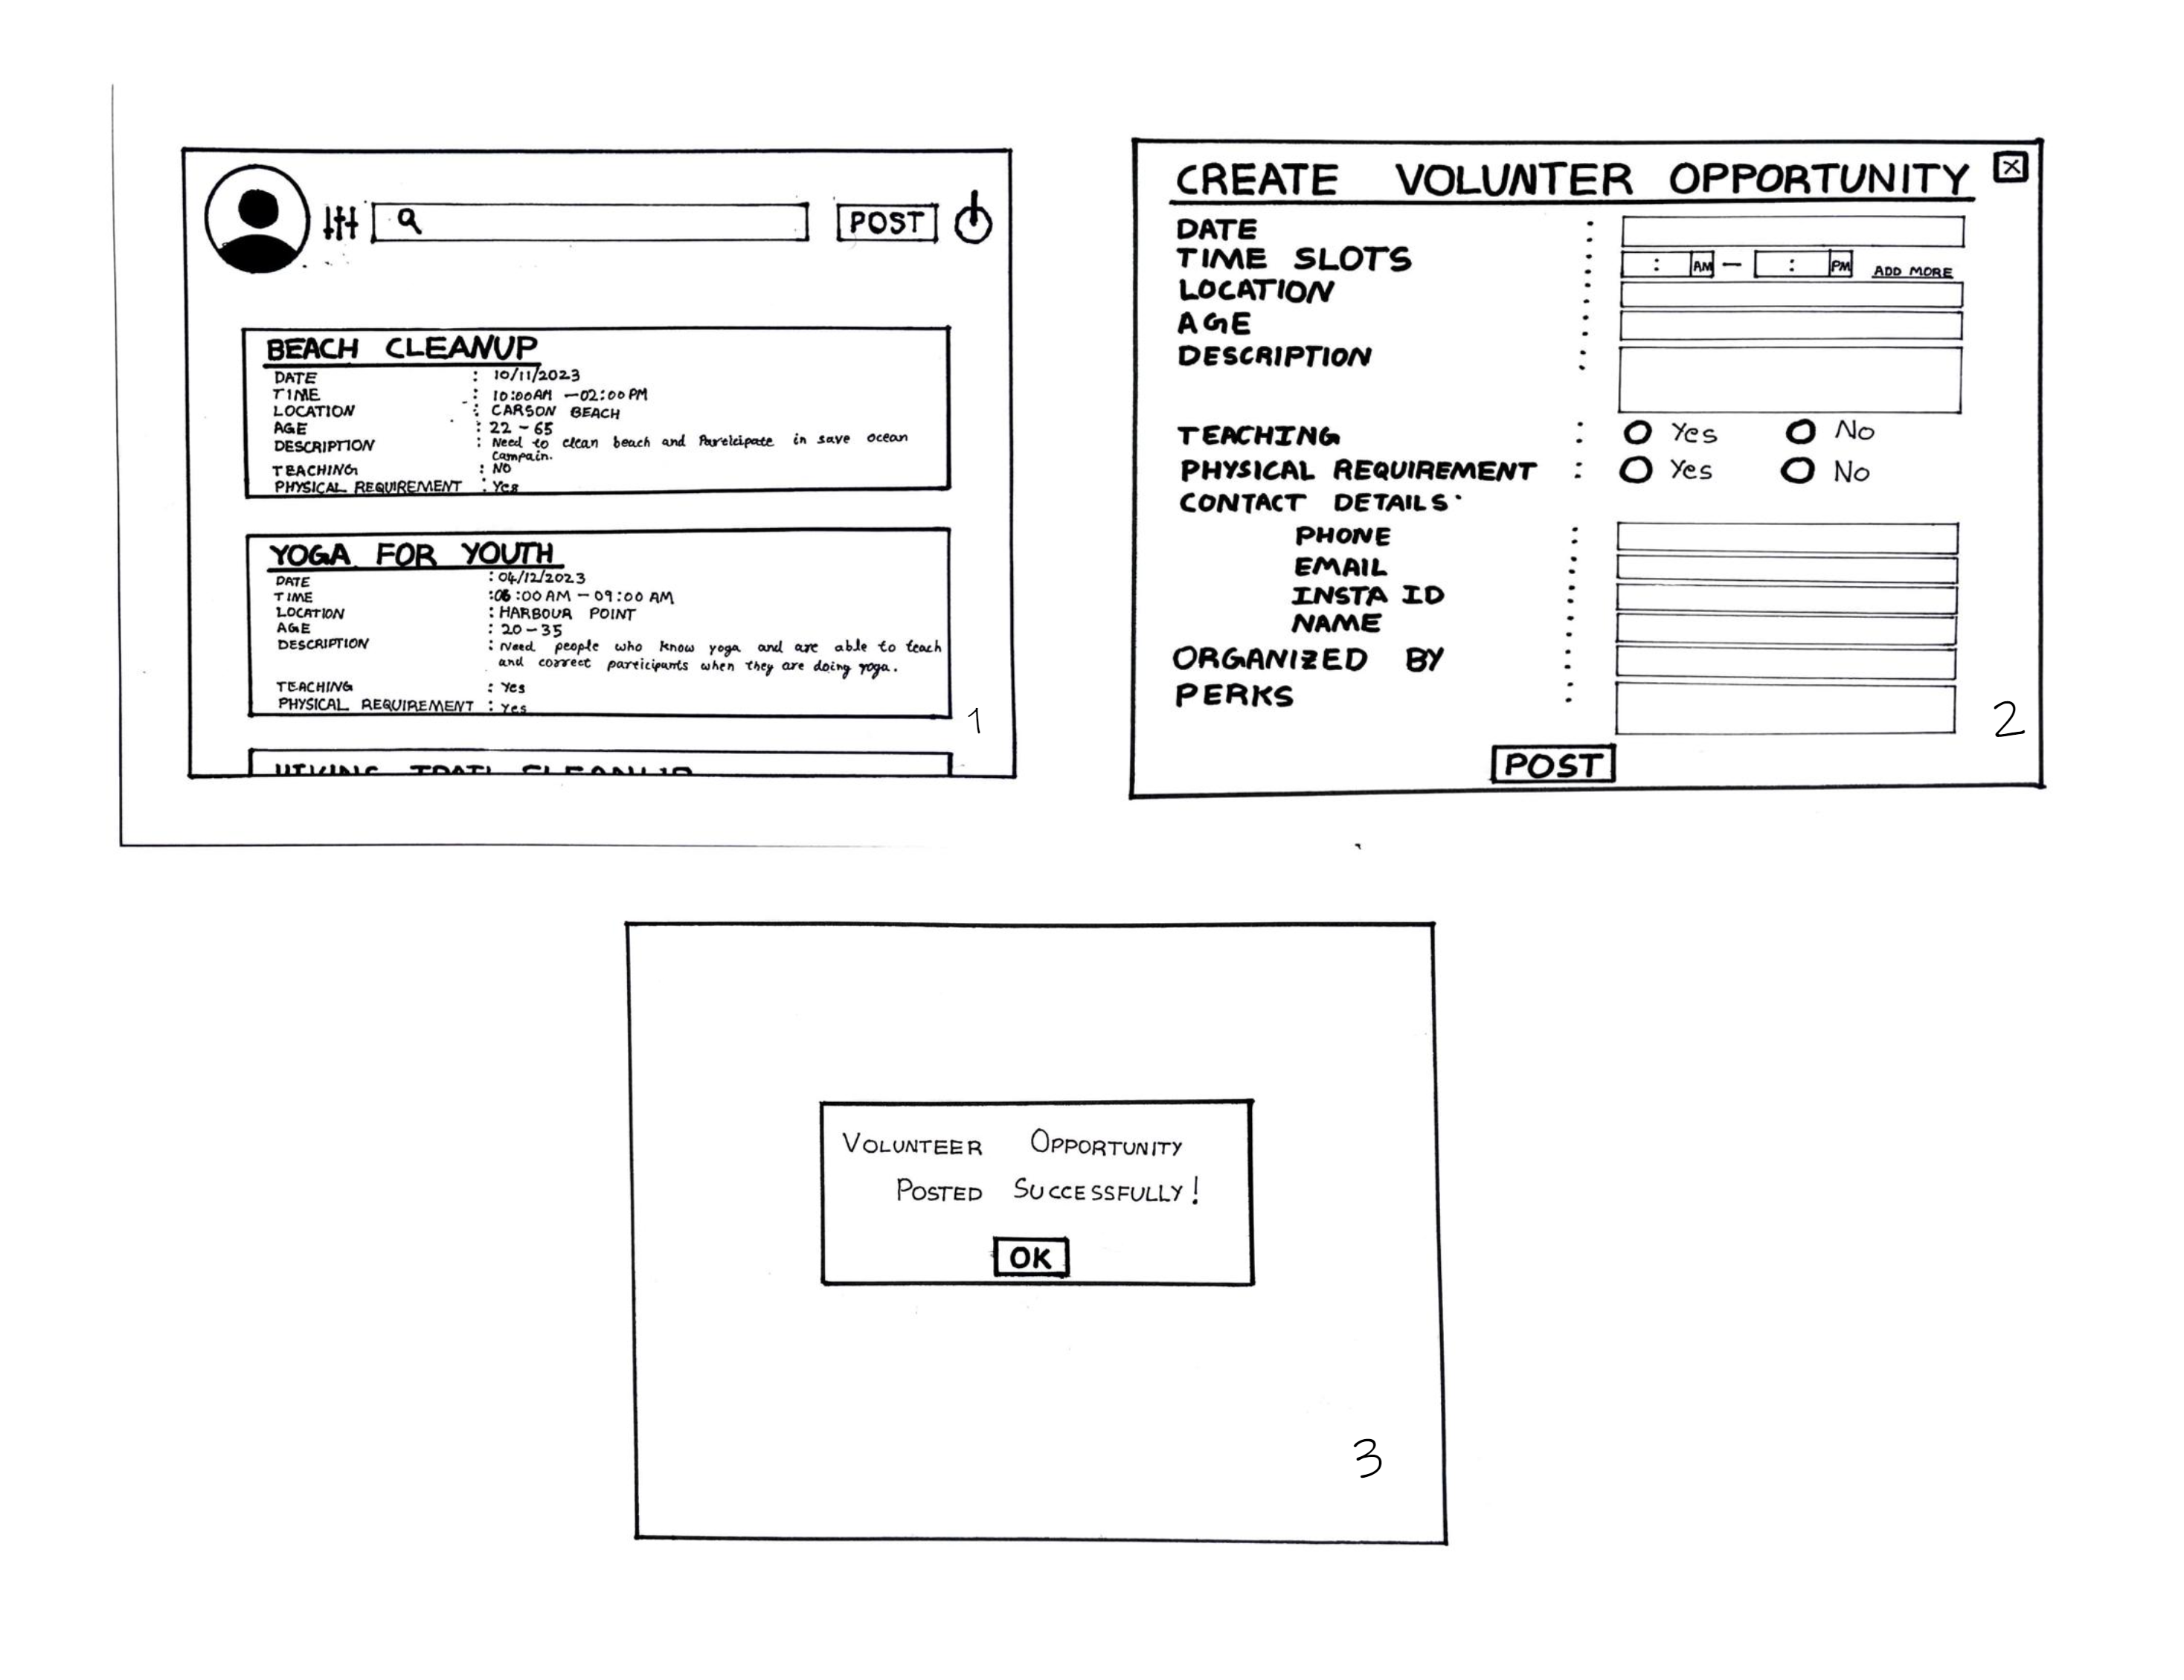 POST
BEACH CLEANUP
DATE : 10/11/2023
TIME : 10:00AM - 02:00PM
LOCATION : CARSON BEACH
AGE : 22 - 65
DESCRIPTION : Need to clean beach and Pareicipate in save ocean
Campain.
TEACHING : NO
PHYSICAL REQUIREMENT : Yes
YOGA FOR YOUTH
DATE : 04/12/2023
TIME : 06:00 AM - 09:00 AM
LOCATION : HARBOUR POINT
AGE : 20-35
DESCRIPTION : Need people who know yoga and are able to teach
and correct participants when they are doing yoga.
TEACHING : Yes
PHYSICAL REQUIREMENT : Yes
1
CREATE VOLUNTER OPPORTUNITY
DATE :
TIME SLOTS : : AM - : PM ADD MORE
LOCATION :
AGE :
DESCRIPTION :
TEACHING : Yes No
PHYSICAL REQUIREMENT : Yes No
CONTACT DETAILS
PHONE :
EMAIL :
INSTA ID :
NAME :
ORGANIZED BY :
PERKS :
2
POST
VOLUNTEER OPPORTUNITY
POSTED SUCCESSFULLY!
OK
3